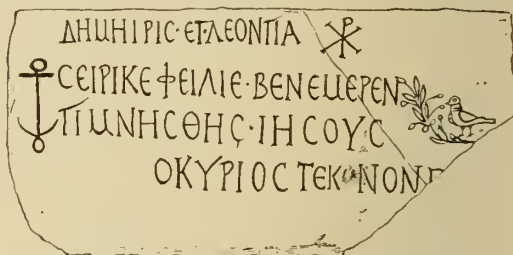 ΔΗΜΗΙΡΙϹ·ΕΤ·ΛΕΟΝΤΙΑ ☧
ϹΕΙΡΙΚΕ ΦΕΙΛΙΕ·ΒΕΝΕΜΕΡΕΝ
ΤΙ ΜΝΗϹΘΗϹ·ΙΗϹΟΥϹ
Ο ΚΥΡΙΟϹ ΤΕΚΝΟΝ